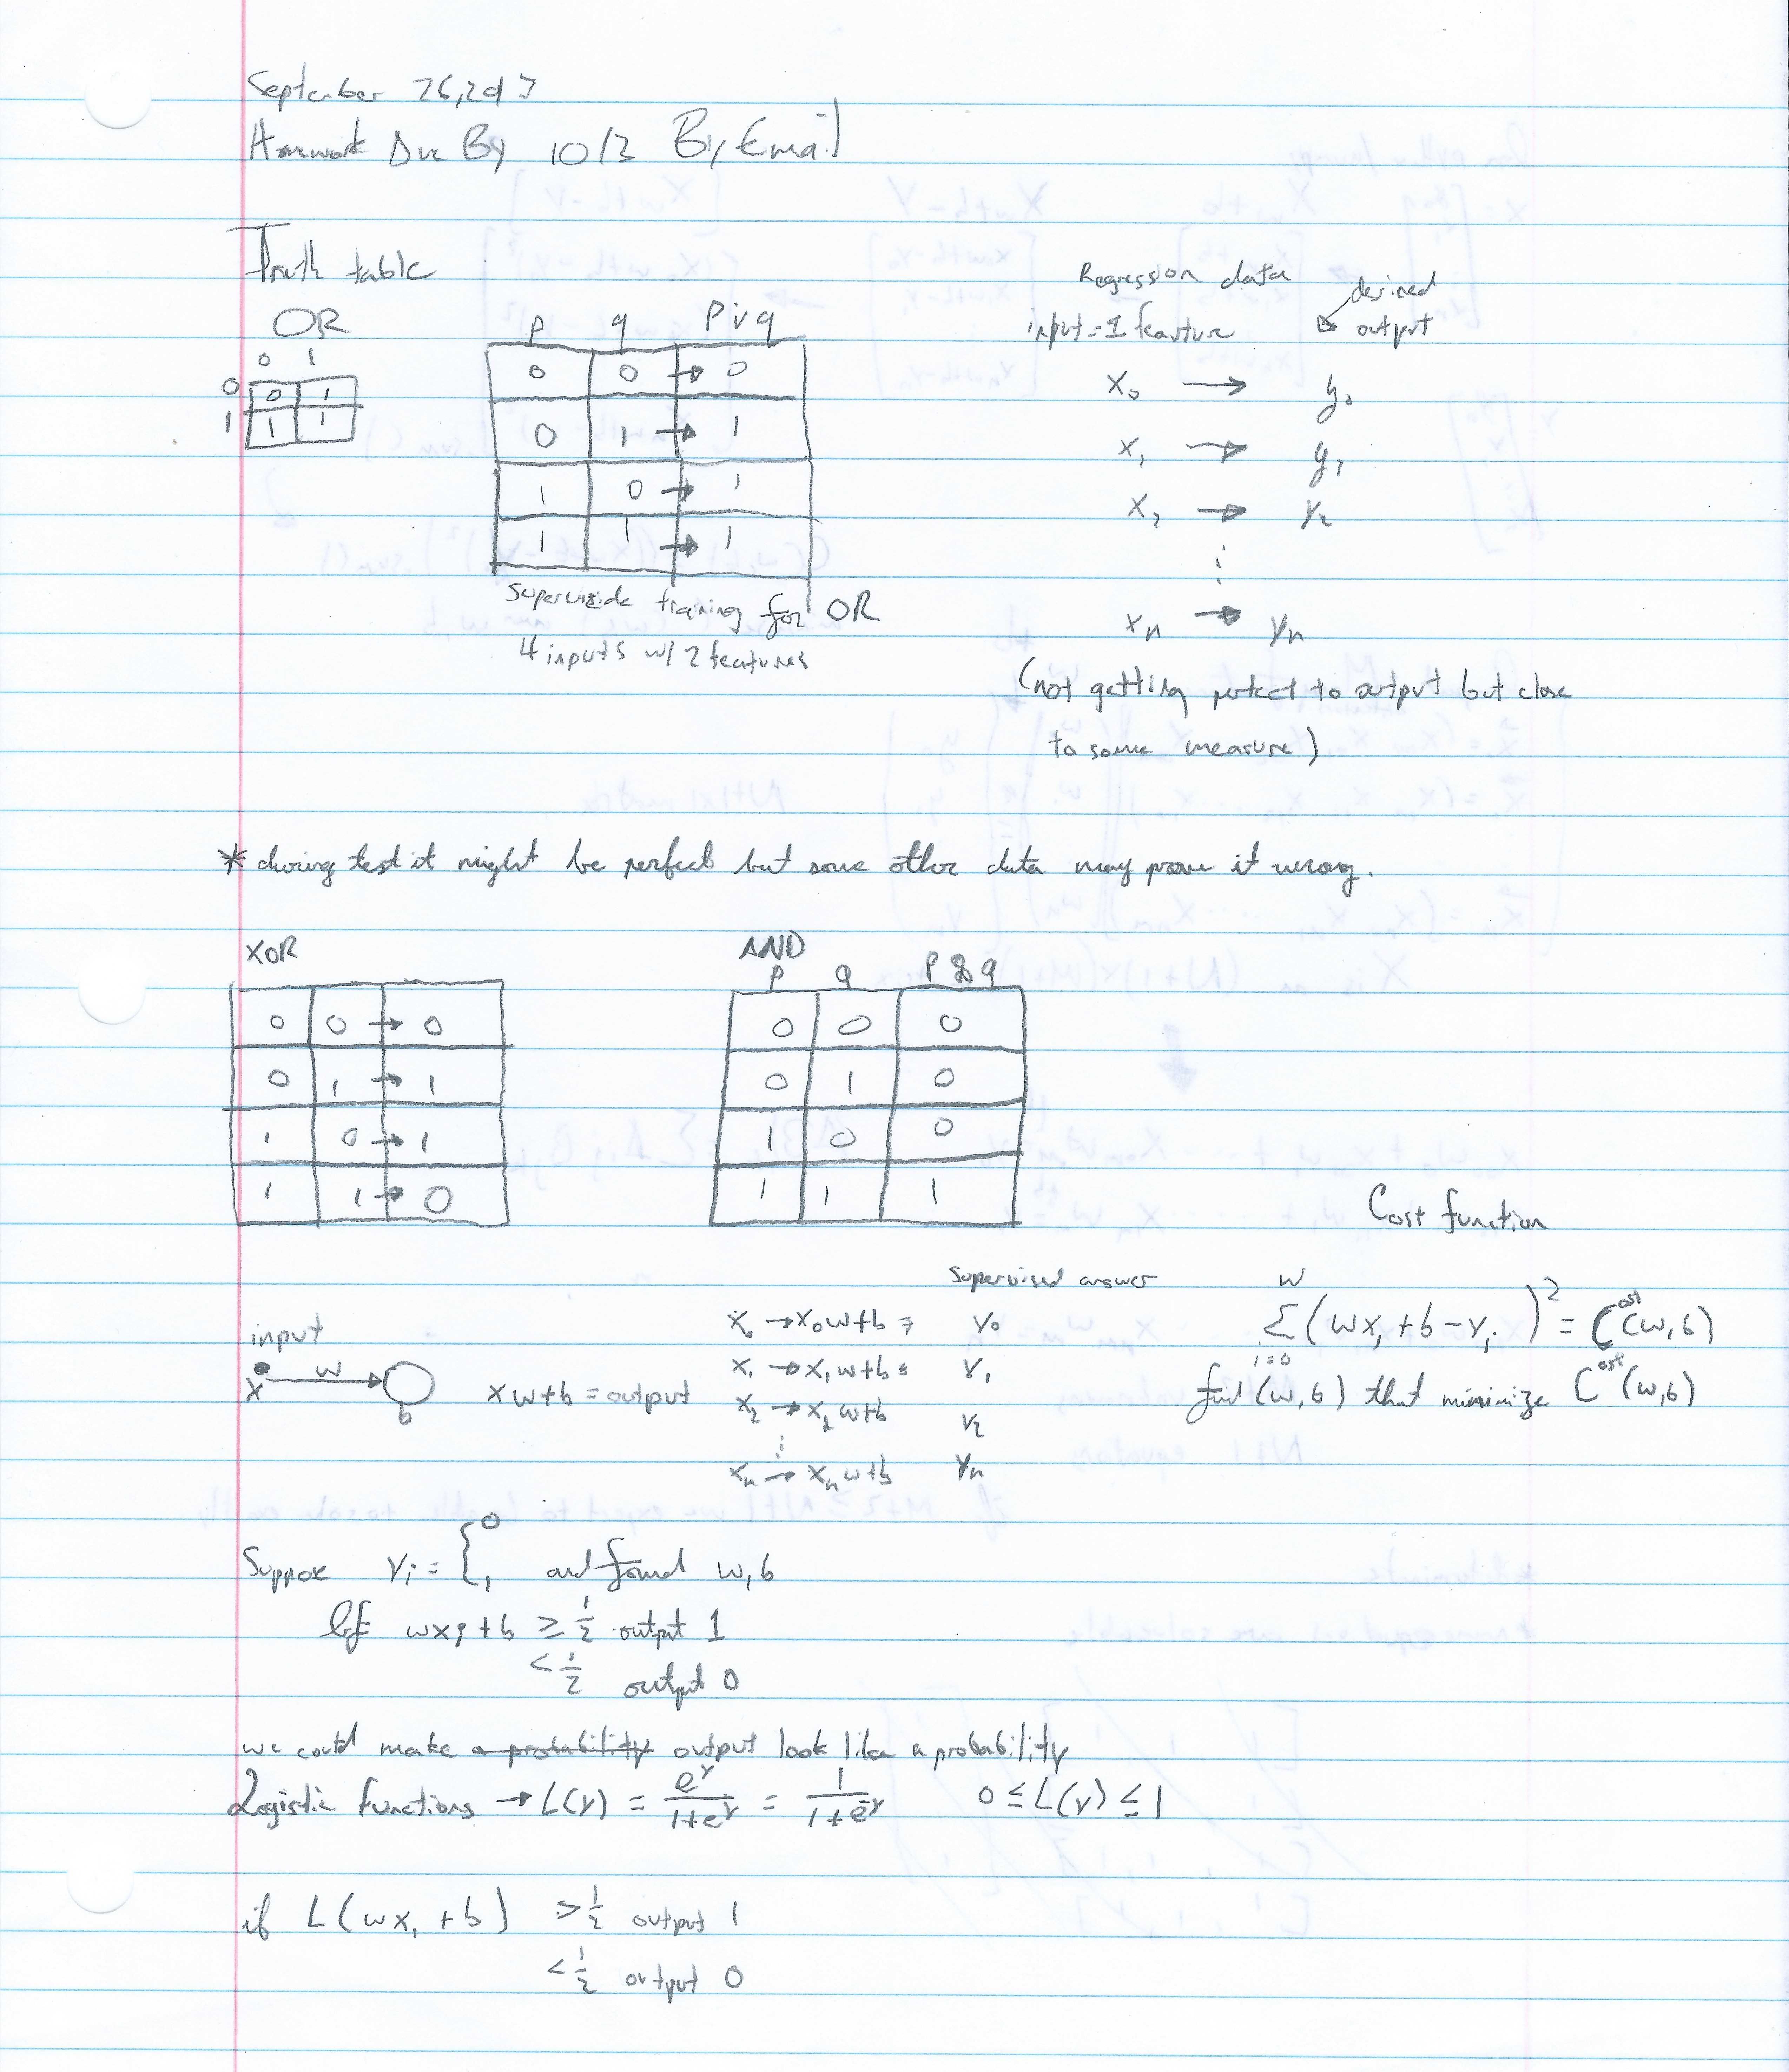 September 26, 2017
Homework Due By 10/3 By Email
Truth table
OR
0 1
0 0 1
1 1 1
p q p v q
0 0 → 0
0 1 → 1
1 0 → 1
1 1 → 1
Superviside training for OR
4 inputs w/ 2 features
Regression data
input = 1 feauture
desired
output
x₀ → y₀
x₁ → y₁
x₂ → y₂
⋮
xₙ → yₙ
(not getting perfect to output but close
to some measure)
* during test it might be perfect but some other data may prove it wrong.
XOR
0 0 → 0
0 1 → 1
1 0 → 1
1 1 → 0
AND
p q p & q
0 0 0
0 1 0
1 0 0
1 1 1
Cost function
input
x w b
xw+b = output
Supervised answer
x₀ → x₀w+b = y₀
x₁ → x₁w+b = y₁
x₂ → x₂w+b y₂
⋮
xₙ → xₙw+b yₙ
N
Σ (wxᵢ + b - yᵢ)² = Cost(w,b)
i=0
find (w,b) that minimize Cost(w,b)
Suppose yᵢ = { 0 1 and found w,b
If wxᵢ + b ≥ 1/2 output 1
< 1/2 output 0
we could make a probability output look like a probability
Logistic functions → L(y) = e^y/(1+e^y) = 1/(1+e^-y) 0 ≤ L(y) ≤ 1
if L(wxᵢ + b) > 1/2 output 1
< 1/2 output 0